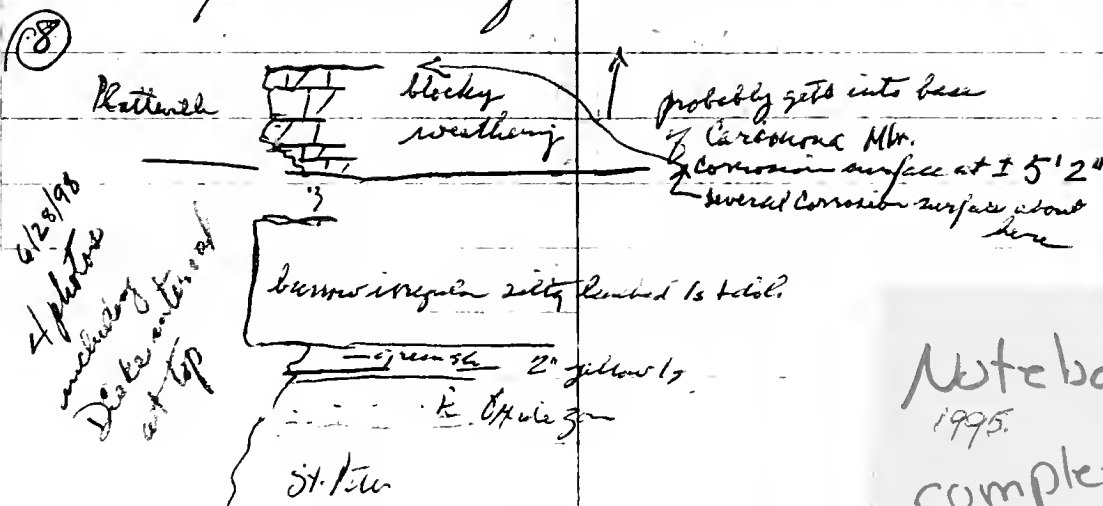 8
Platteville
blocky
weathering
probably gets into base
of Carimona Mbr.
corrosion surface at ± 5' 2"
several corrosion surface about
here
6/28/98
4 photos
including
at top
burrow irregular silty ls
green sh
2" yellow ls
St. Peter
Notebo
1995.
comple